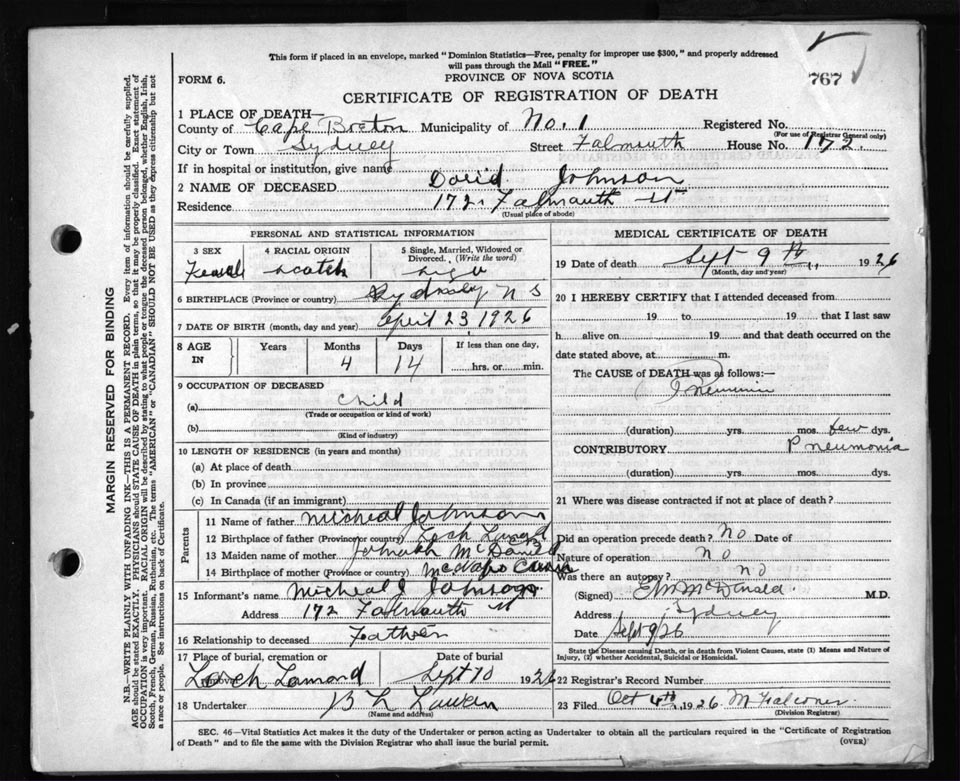 This form if placed in an envelope, marked "Dominion Statistics—Free, penalty for improper use $300," and properly addressed
will pass through the Mail "FREE."
767
FORM 6.
PROVINCE OF NOVA SCOTIA
CERTIFICATE OF REGISTRATION OF DEATH
1 PLACE OF DEATH—
County of Cape Breton Municipality of No. 1 Registered No.
(For use of Registrar General only)
City or Town Sydney Street Falmouth House No. 172
If in hospital or institution, give name
2 NAME OF DECEASED David Johnson
Residence 172 Falmouth St
(Usual place of abode)
PERSONAL AND STATISTICAL INFORMATION
3 SEX 4 RACIAL ORIGIN 5 Single, Married, Widowed or
Divorced. (Write the word)
Scotch
6 BIRTHPLACE (Province or country) Sydney N S
7 DATE OF BIRTH (month, day and year) April 23, 1926
8 AGE IN Years Months Days If less than one day,
4 14 hrs. or min.
9 OCCUPATION OF DECEASED
(a) Child
(Trade or occupation or kind of work)
(b)
(Kind of industry)
10 LENGTH OF RESIDENCE (in years and months)
(a) At place of death
(b) In province
(c) In Canada (if an immigrant)
Parents
11 Name of father Micheal Johnson
12 Birthplace of father (Province or country) Loch
13 Maiden name of mother
14 Birthplace of mother (Province or country)
15 Informant's name Micheal J Johnson
Address 172 Falmouth St
16 Relationship to deceased Father
17 Place of burial, cremation or Date of burial
Loch Lomond Sept 10 1926
18 Undertaker
(Name and address)
MEDICAL CERTIFICATE OF DEATH
19 Date of death Sept 9th 1926
(Month, day and year)
20 I HEREBY CERTIFY that I attended deceased from
19 to 19 that I last saw
h alive on 19 and that death occurred on the
date stated above, at m.
The CAUSE of DEATH was as follows:
(duration) yrs. mos. few dys.
CONTRIBUTORY Pneumonia
(duration) yrs. mos. dys.
21 Where was disease contracted if not at place of death?
Did an operation precede death? No Date of
Nature of operation no
Was there an autopsy? no
(Signed) McDonald M.D.
Address Sydney
Date Sept 9/26
State the Disease causing Death, or in death from Violent Causes, state (1) Means and Nature of
Injury, (2) whether Accidental, Suicidal or Homicidal.
22 Registrar's Record Number
23 Filed Oct 4th, 1926 M Falconer
(Division Registrar)
SEC. 46—Vital Statistics Act makes it the duty of the Undertaker or person acting as Undertaker to obtain all the particulars required in the "Certificate of Registration
of Death" and to file the same with the Division Registrar who shall issue the burial permit.
(OVER)
MARGIN RESERVED FOR BINDING
N.B.—WRITE PLAINLY WITH UNFADING INK—THIS IS A PERMANENT RECORD. Every item of information should be carefully supplied.
AGE should be stated EXACTLY. PHYSICIANS should STATE CAUSE OF DEATH in plain terms, so that it may be properly classified. Exact statement of
OCCUPATION is very important. RACIAL ORIGIN will be described by stating to what people or tongue the deceased person belonged, whether English, Irish,
Scotch, French, German, Russian, Ruthenian, etc. The terms "AMERICAN" or "CANADIAN" SHOULD NOT BE USED as they express citizenship but not
a race or people. See instructions on back of Certificate.